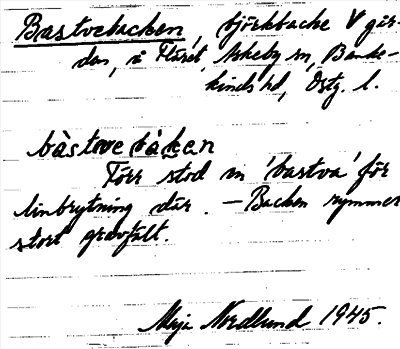 Bastvebacken, björkbacke V går-
den, i Fläret, Askeby sn, Banke-
kinds hd, Östg. l.
bàstvebàken
Förr stod en 'bastva' för
linbrytning där. – Backen rymmer
stort gravfält.
Maja Nordlund 1945.